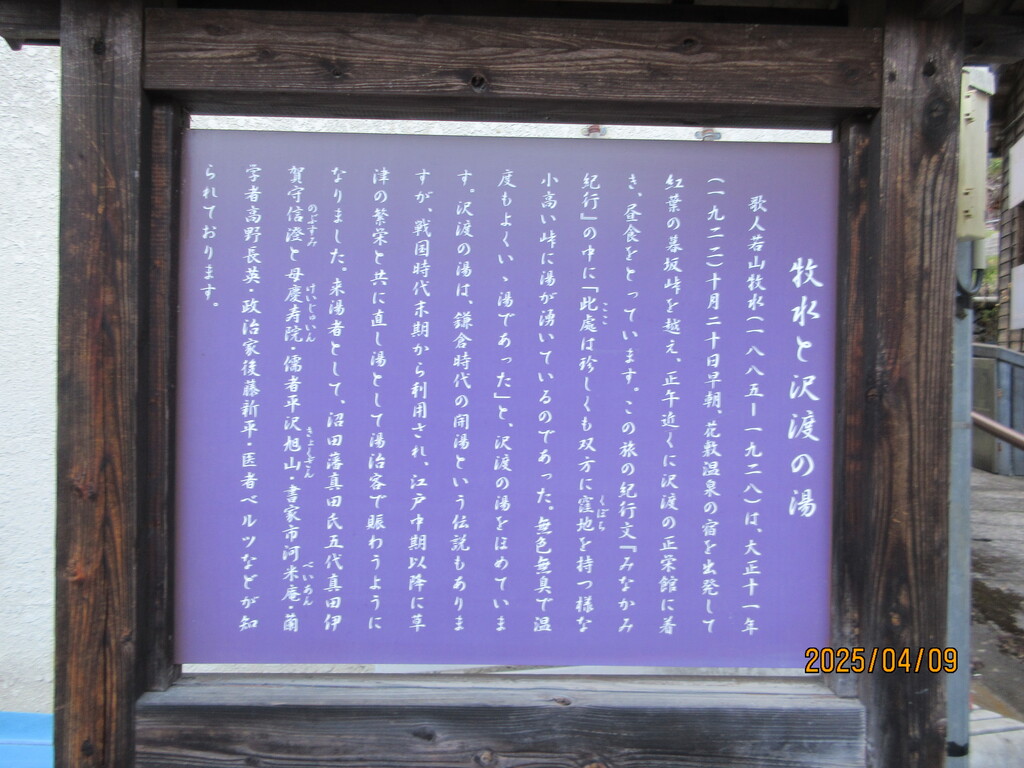 牧水と沢渡の湯
歌人若山牧水(一八八五ー一九二八)は、大正十一年
(一九二二)十月二十日早朝、花敷温泉の宿を出発して
紅葉の暮坂峠を越え、正午近くに沢渡の正栄館に着
き、昼食をとっています。この旅の紀行文『みなかみ
紀行』の中に「此處は珍しくも双方に窪地を持つ様な
ここ
くぼち
小高い峠に湯が湧いているのであった。無色無臭で温
度もよくいゝ湯であった」と、沢渡の湯をほめていま
す。沢渡の湯は、鎌倉時代の開湯という伝説もありま
すが、戦国時代末期から利用され、江戸中期以降に草
津の繁栄と共に直し湯として湯治客で賑わうように
なりました。来湯者として、沼田藩真田氏五代真田伊
賀守信澄と母慶寿院・儒者平沢旭山・書家市河米庵・蘭
のぶすみ
けいじゅいん
きょくざん
べいあん
学者高野長英・政治家後藤新平・医者ベルツなどが知
られております。
2025/04/09